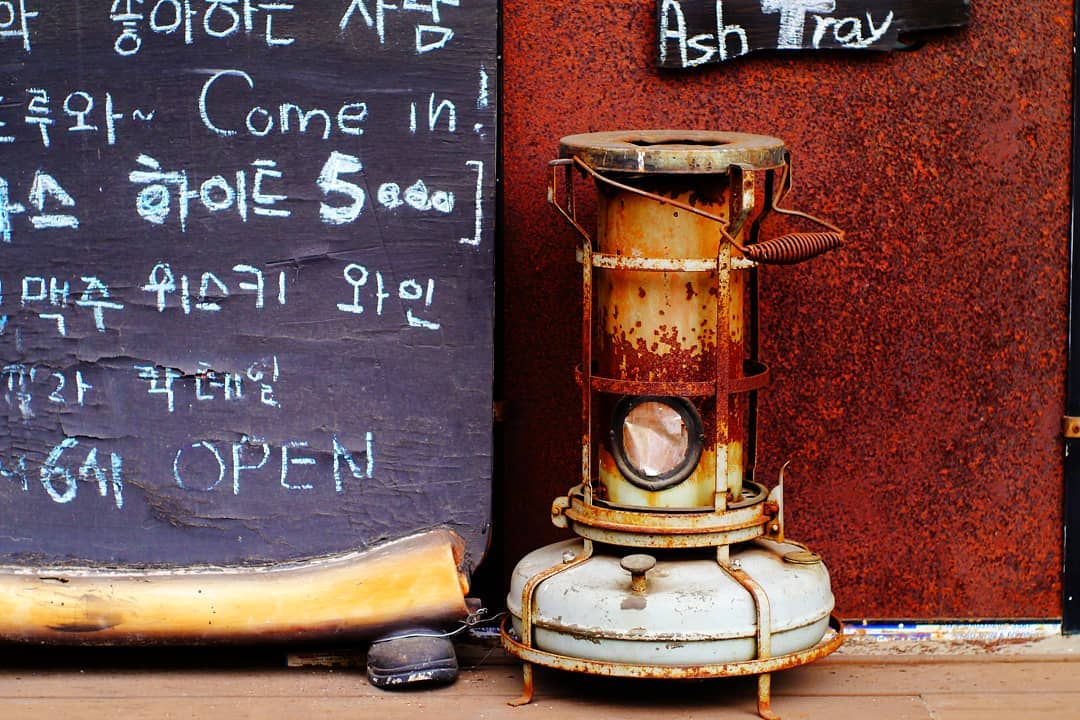 와 좋아하는 사람
루와~ Come in!
스 하이트 5000]
맥주 위스키 와인
콜라 칵테일
6시 OPEN
Ash Tray